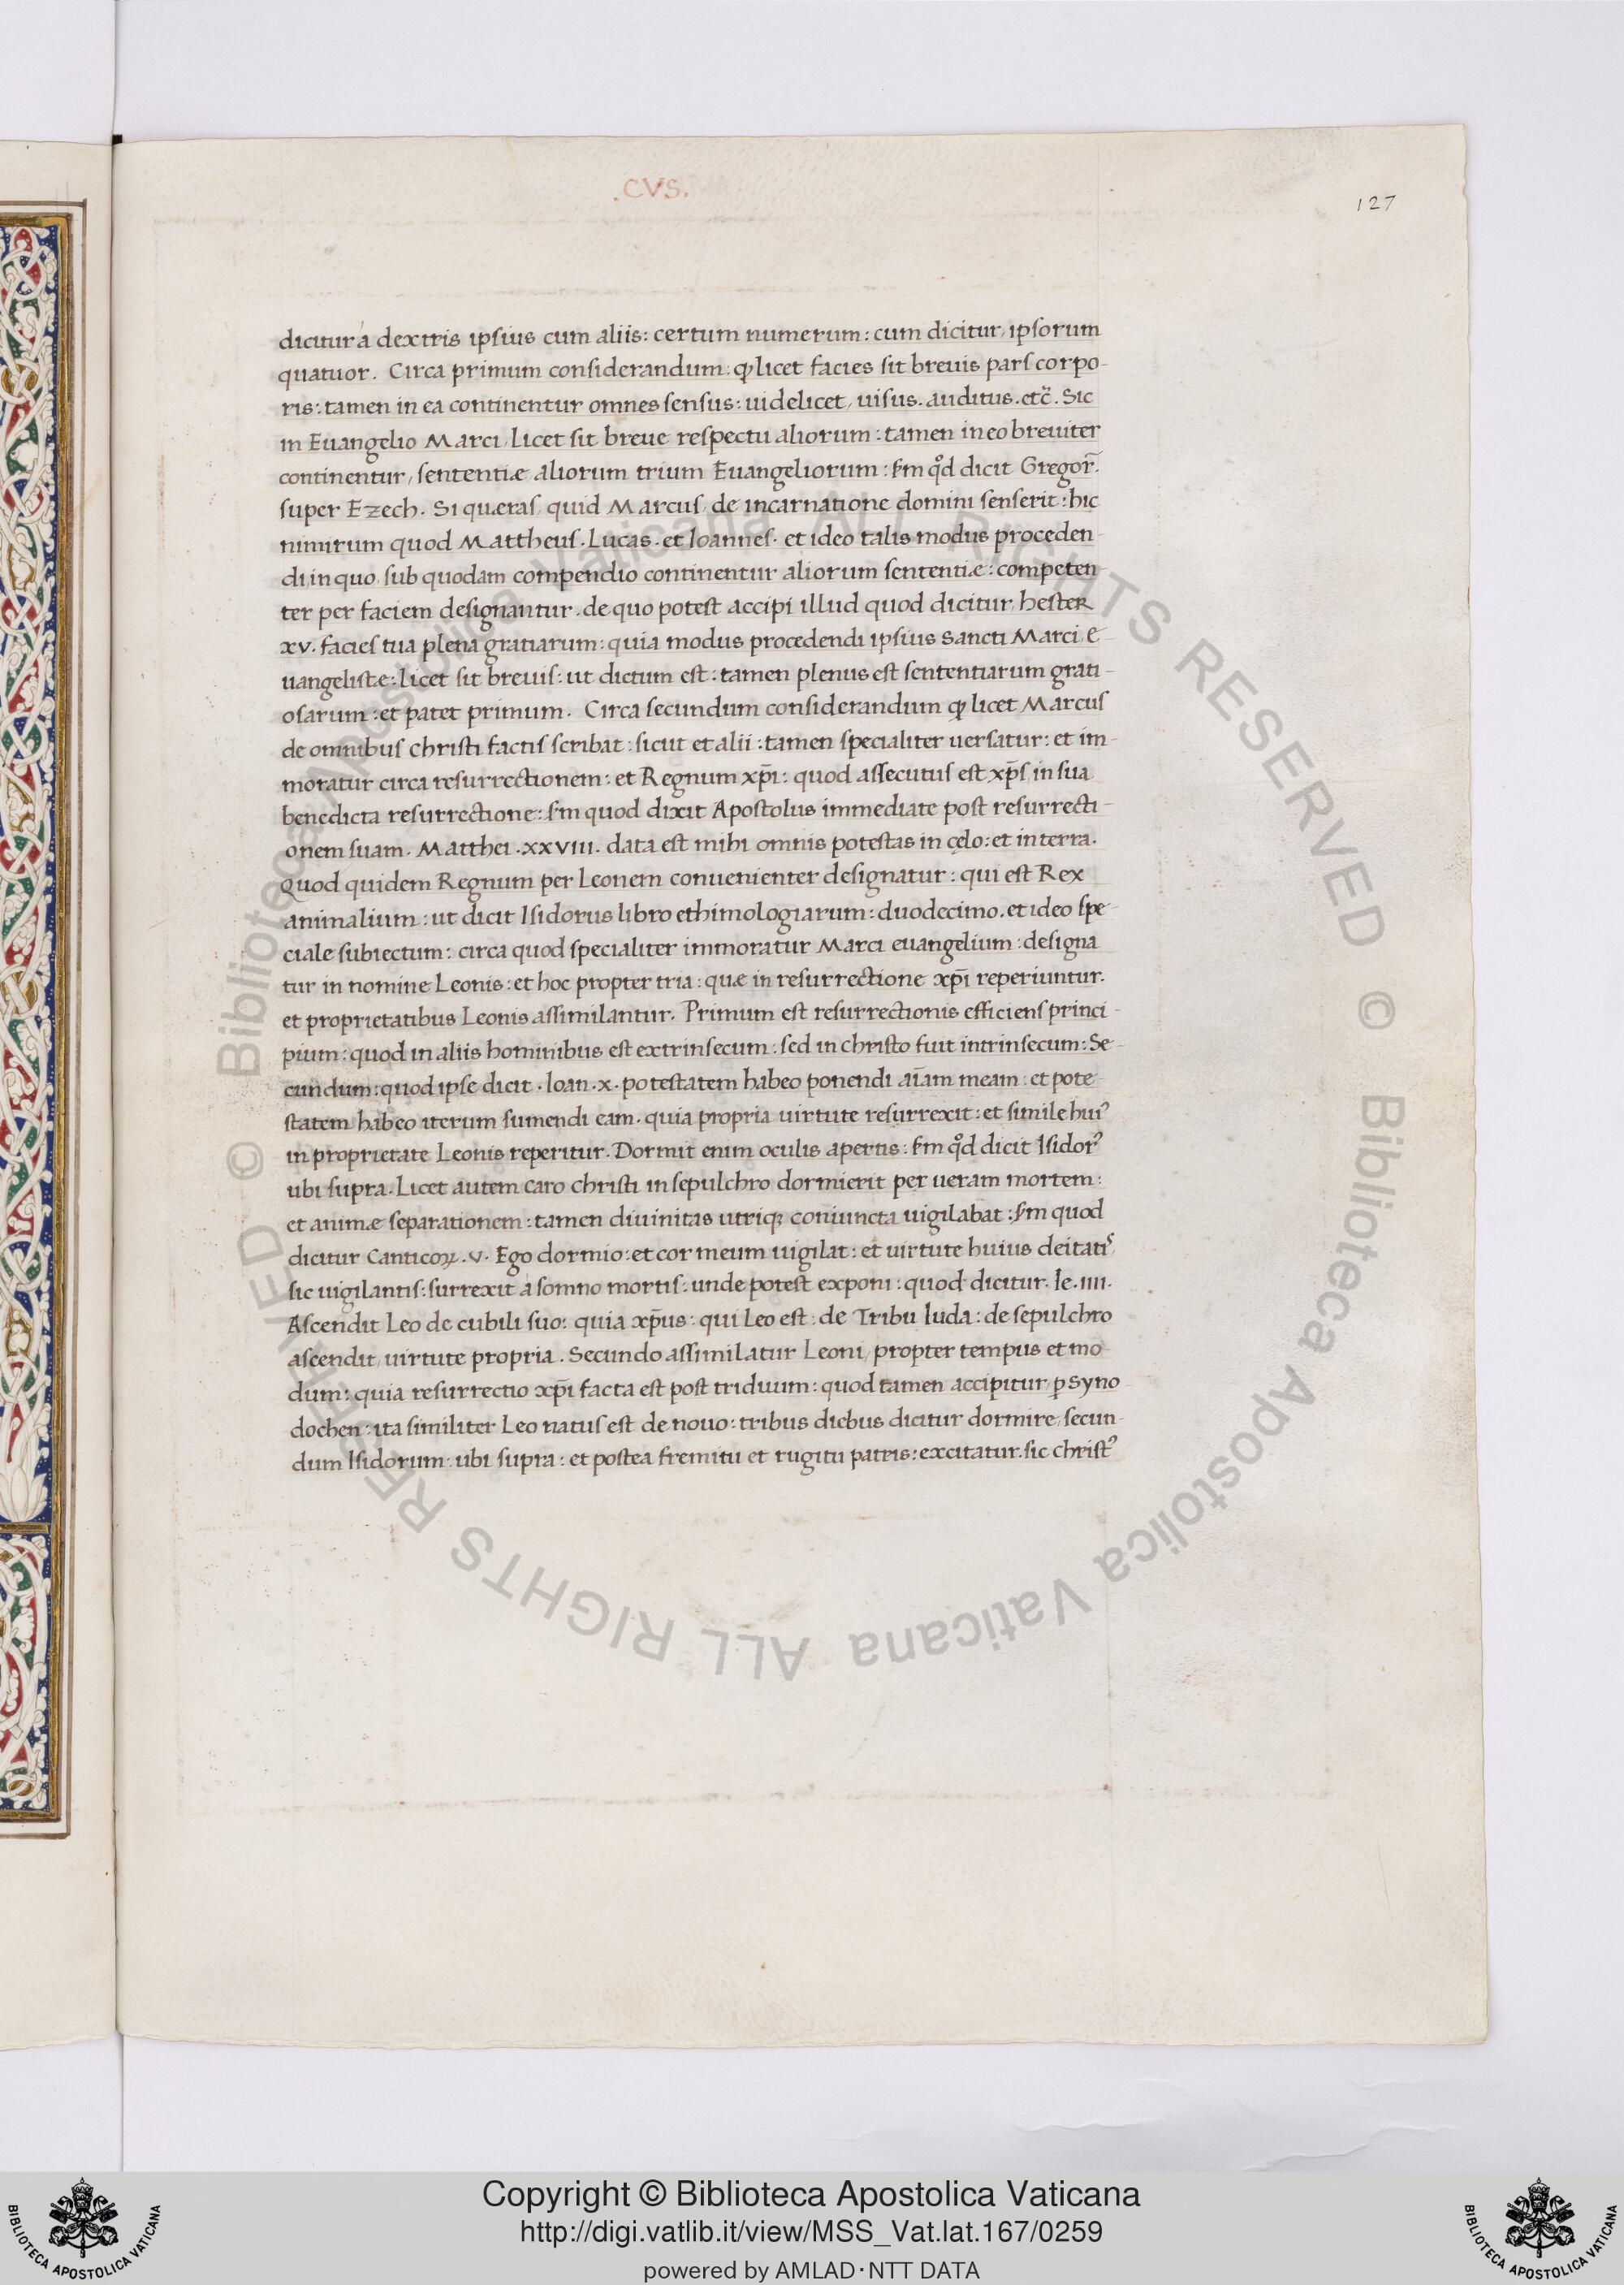 .CVS.
127
dicitur a dextris ipsius cum aliis: certum numerum: cum dicitur, ipsorum
quatuor. Circa primum considerandum: ꝙ licet facies sit breuis pars corpo-
ris: tamen in ea continentur omnes sensus: uidelicet, uisus. auditus. etc̃. Sic
in Euangelio Marci, licet sit breue respectu aliorum: tamen in eo breuiter
continentur, sententiæ aliorum trium Euangeliorum: ẜm qd̉ dicit Gregor̃.
super Ezech. Si quæras, quid Marcus, de incarnatione domini senserit: hic
nimirum quod Mattheus. Lucas. et Ioannes. et ideo talis modus proceden-
di, in quo, sub quodam compendio continentur aliorum sententiæ: competen-
ter per faciem designantur. de quo potest accipi illud quod dicitur, hester
xv. facies tua plena gratiarum: quia modus procedendi ipsius sancti Marci, e-
uangelistæ: licet sit breuis: ut dictum est: tamen plenus est sententiarum grati-
osarum: et patet primum. Circa secundum considerandum ꝙ licet Marcus
de omnibus christi factis scribat: sicut et alii: tamen specialiter uersatur: et im-
moratur circa resurrectionem: et Regnum xp̃i: quod assecutus est xp̃s, in sua
benedicta resurrectione: ẜm quod dixit Apostolus immediate post resurrecti-
onem suam. Matthei .xxviii. data est mihi omnis potestas in cęlo: et in terra.
Quod quidem Regnum per Leonem conuenienter designatur: qui est Rex
animalium: ut dicit Isidorus libro ethimologiarum: duodecimo. et ideo spe-
ciale subiectum: circa quod specialiter immoratur Marci euangelium: designa
tur in nomine Leonis: et hoc propter tria: quæ in resurrectione xp̃i reperiuntur.
et proprietatibus Leonis assimilantur. Primum est resurrectionis efficiens princi-
pium: quod in aliis hominibus est extrinsecum: sed in christo fuit intrinsecum: Se-
cundum: quod ipse dicit. Ioan. x. potestatem habeo ponendi aĩam meam: et pote-
statem habeo iterum sumendi eam. quia propria uirtute resurrexit: et simile huiꝰ
in proprietate Leonis reperitur. Dormit enim oculis apertis: ẜm qd̉ dicit Isidorꝰ
ubi supra. Licet autem caro christi in sepulchro dormierit per ueram mortem:
et animæ separationem: tamen diuinitas utriqꝫ coniuncta uigilabat: ẜm quod
dicitur Canticoꝝ. v. Ego dormio: et cor meum uigilat: et uirtute huius deitatis
sic uigilantis: surrexit a somno mortis: unde potest exponi: quod dicitur. Ie. iiii.
Ascendit Leo de cubili suo: quia xp̃us: qui Leo est: de Tribu Iuda: de sepulchro
ascendit, uirtute propria. Secundo assimilatur Leoni, propter tempus et mo-
dum: quia resurrectio xp̃i facta est post triduum: quod tamen accipitur, ꝑ syno
dochen: ita similiter Leo natus est de nouo: tribus diebus dicitur dormire, secun-
dum Isidorum: ubi supra: et postea fremitu et rugitu patris: excitatur. sic christꝰ
© Biblioteca Apostolica Vaticana ALL RIGHTS RESERVED © Biblioteca Apostolica Vaticana ALL RIGHTS RESERVED
Copyright © Biblioteca Apostolica Vaticana
http://digi.vatlib.it/view/MSS_Vat.lat.167/0259
powered by AMLAD·NTT DATA
BIBLIOTECA APOSTOLICA VATICANA
BIBLIOTECA APOSTOLICA VATICANA